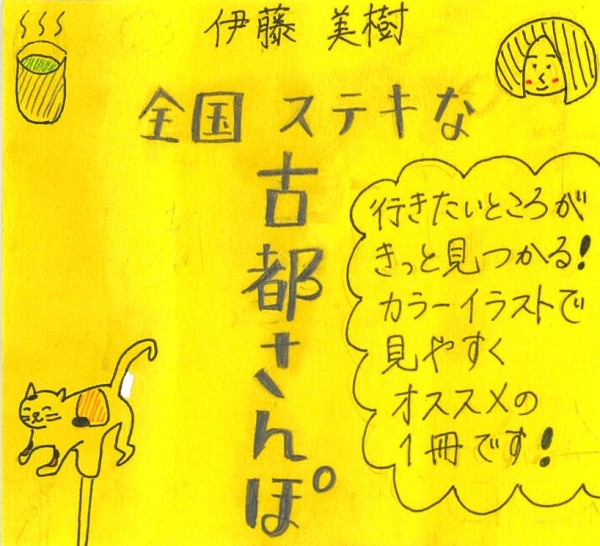 伊藤 美樹
全国 ステキな
古都さんぽ
行きたいところが
きっと見つかる!
カラーイラストで
見やすく
オススメの
1冊です!